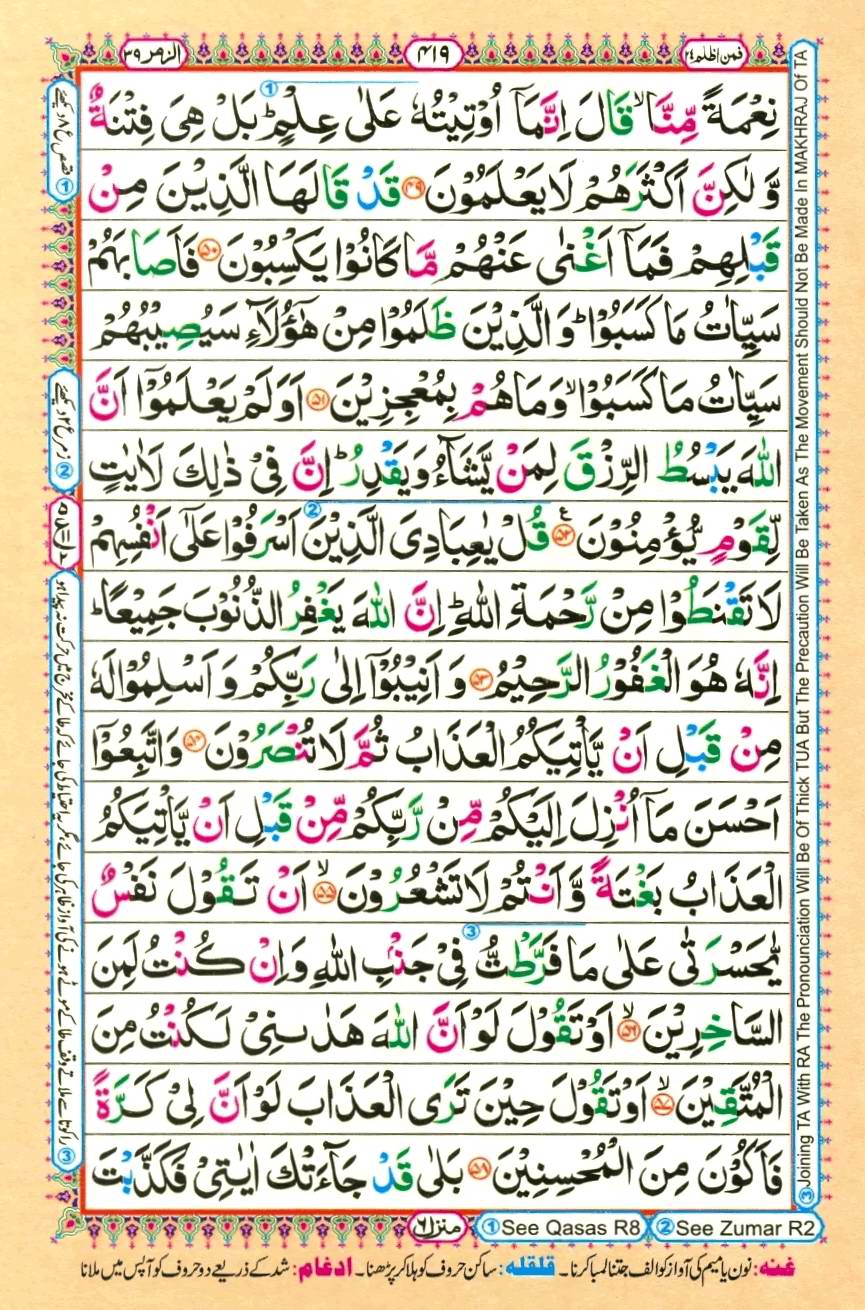 الزمر ٣٩
٤١٩
فمن اظلم ٢٤
نِعْمَةً مِّنَّا ۙ قَالَ اِنَّمَاۤ اُوْتِيْتُهٗ عَلٰى عِلْمٍ ؕ بَلْ هِیَ فِتْنَةٌ
وَّ لٰكِنَّ اَكْثَرَهُمْ لَا يَعْلَمُوْنَ ۴۹ قَدْ قَالَهَا الَّذِيْنَ مِنْ
قَبْلِهِمْ فَمَاۤ اَغْنٰى عَنْهُمْ مَّا كَانُوْا يَكْسِبُوْنَ ۵۰ فَاَصَابَهُمْ
سَيِّاٰتُ مَا كَسَبُوْا ؕ وَ الَّذِيْنَ ظَلَمُوْا مِنْ هٰۤؤُلَآءِ سَيُصِيْبُهُمْ
سَيِّاٰتُ مَا كَسَبُوْا ۙ وَ مَا هُمْ بِمُعْجِزِيْنَ ۵۱ اَوَ لَمْ يَعْلَمُوْۤا اَنَّ
اللّٰهَ يَبْسُطُ الرِّزْقَ لِمَنْ يَّشَآءُ وَ يَقْدِرُ ؕ اِنَّ فِیْ ذٰلِكَ لَاٰيٰتٍ
لِّقَوْمٍ يُّؤْمِنُوْنَ ۵۲ قُلْ يٰعِبَادِیَ الَّذِيْنَ اَسْرَفُوْا عَلٰۤى اَنْفُسِهِمْ
لَا تَقْنَطُوْا مِنْ رَّحْمَةِ اللّٰهِ ؕ اِنَّ اللّٰهَ يَغْفِرُ الذُّنُوْبَ جَمِيْعًا ؕ
اِنَّهٗ هُوَ الْغَفُوْرُ الرَّحِيْمُ ۵۳ وَ اَنِيْبُوْۤا اِلٰى رَبِّكُمْ وَ اَسْلِمُوْا لَهٗ
مِنْ قَبْلِ اَنْ يَّاْتِيَكُمُ الْعَذَابُ ثُمَّ لَا تُنْصَرُوْنَ ۵۴ وَ اتَّبِعُوْۤا
اَحْسَنَ مَاۤ اُنْزِلَ اِلَيْكُمْ مِّنْ رَّبِّكُمْ مِّنْ قَبْلِ اَنْ يَّاْتِيَكُمُ
الْعَذَابُ بَغْتَةً وَّ اَنْتُمْ لَا تَشْعُرُوْنَ ۙ ۵۵ اَنْ تَقُوْلَ نَفْسٌ
يّٰحَسْرَتٰى عَلٰى مَا فَرَّطْتُّ فِیْ جَنْۢبِ اللّٰهِ وَ اِنْ كُنْتُ لَمِنَ
السَّاخِرِيْنَ ۙ ۵۶ اَوْ تَقُوْلَ لَوْ اَنَّ اللّٰهَ هَدٰىنِیْ لَكُنْتُ مِنَ
الْمُتَّقِيْنَ ۙ ۵۷ اَوْ تَقُوْلَ حِيْنَ تَرَى الْعَذَابَ لَوْ اَنَّ لِیْ كَرَّةً
فَاَكُوْنَ مِنَ الْمُحْسِنِيْنَ ۵۸ بَلٰى قَدْ جَآءَتْكَ اٰيٰتِیْ فَكَذَّبْتَ
③ Joining TA With RA The Pronounciation Will Be Of Thick TUA But The Precaution Will Be Taken As The Movement Should Not Be Made In MAKHRAJ Of TA
منزل ٦
① See Qasas R8
② See Zumar R2
غنہ: نون یا میم کی آواز کو الف جتنا لمبا کرنا۔ قلقلہ: ساکن حروف کو ہلا کر پڑھنا۔ ادغام: شد کے ذریعے دو حروف کو آپس میں ملانا